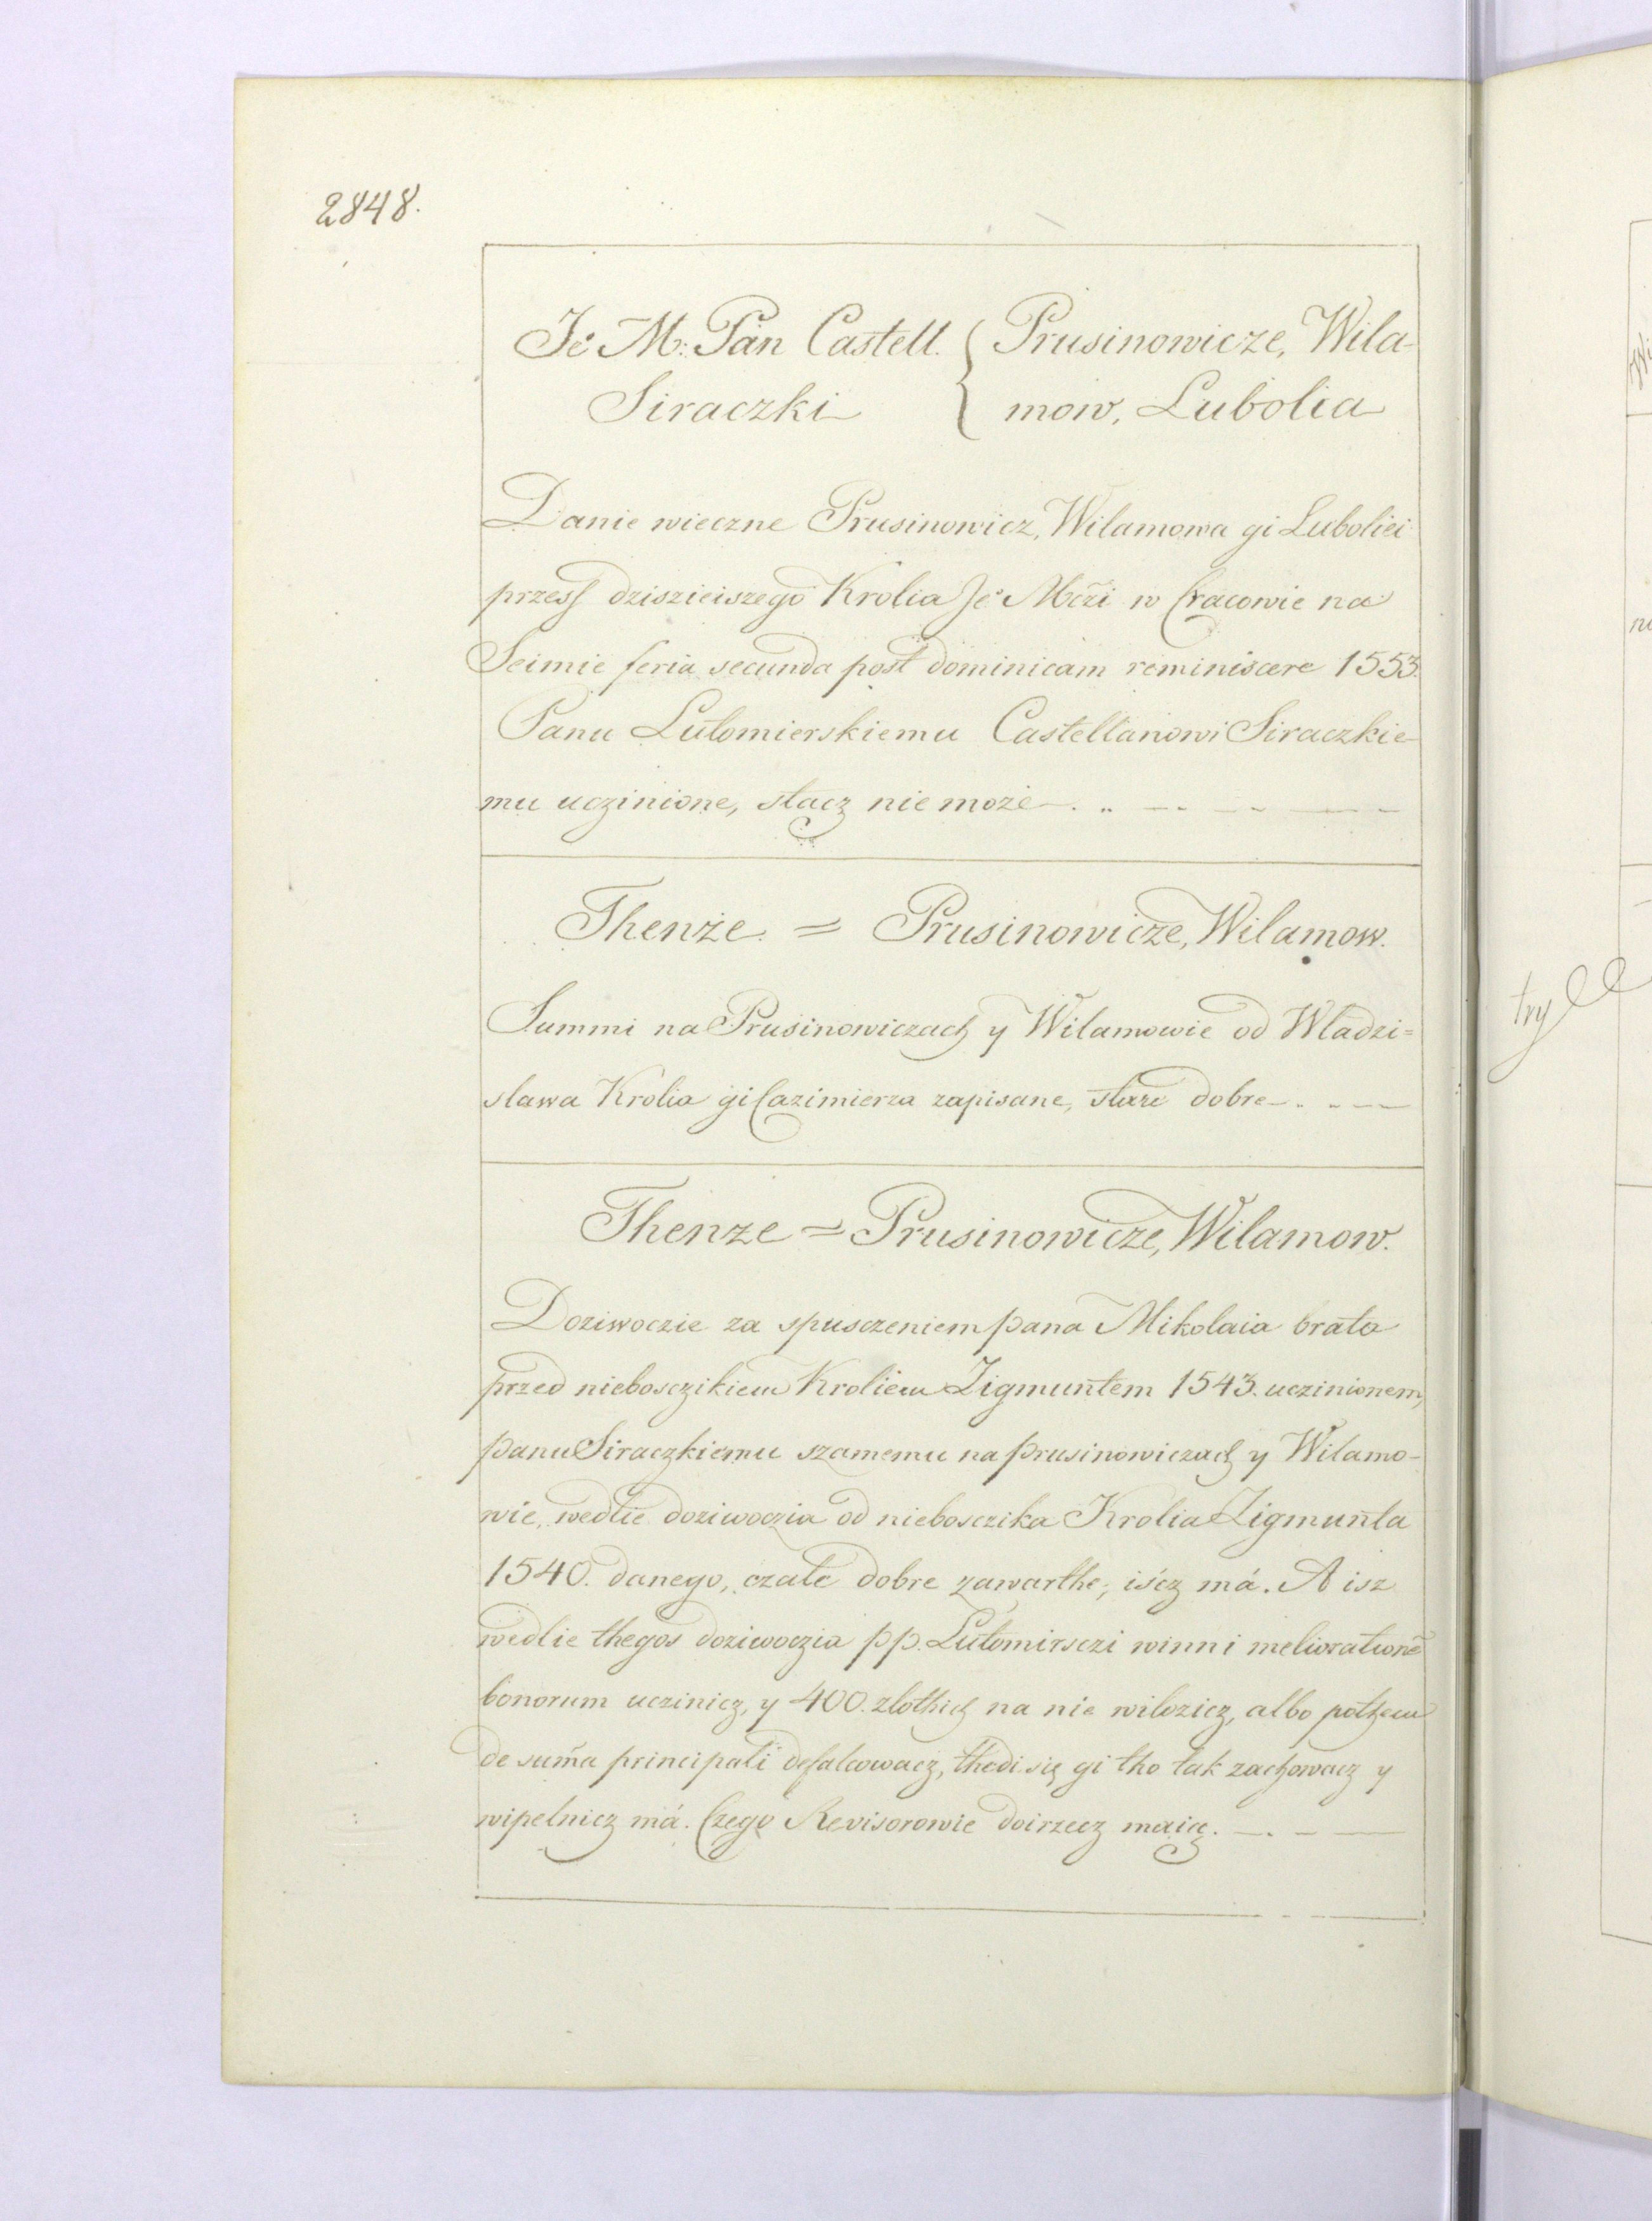 2848.
Je M: Pan Castell. { Prusinowicze, Wila-
Siraczki { mow, Lubolia
Danie wieczne Prusinowicz, Wilamowa gi Luboliei
przess dziszieiszego Krolia Je Mczi w Cracowie na
Seimie feria secunda post dominicam reminiscere 1553.
Panu Lutomierskiemu Castellanowi Siraczkie-
mu uczinione, stacz nie może
Thenże = Prusinowicze, Wilamow.
Summi na Prusinowiczach y Wilamowie od Wladzi=
slawa Krolia gi Cazimierza zapisane, stare dobre
Thenze = Prusinowicze, Wilamow.
Doziwoczie za spusczeniem pana Mikolaia brata
przed nieboszczikiem Kroliem Zigmuntem 1543. uczinionem,
panu Siraczkiemu szamemu na prusinowiczach y Wilamo-
wie, wedlie doziwoczia od niebosczika Krolia Zigmunta
1540. danego, czale dobre zawarthe, iścz má. A isz
wedlie thegos doziwoczia pp. Lutomirsczi winni meliorationē
bonorum uczinicz, y 400. zlothich na nie wilozicz, albo pothem
de suma principali defalcowacz, thedi się gi tho tak zachowacz y
wipelnicz má. Czego Revisorowie doirzecz maią.
try